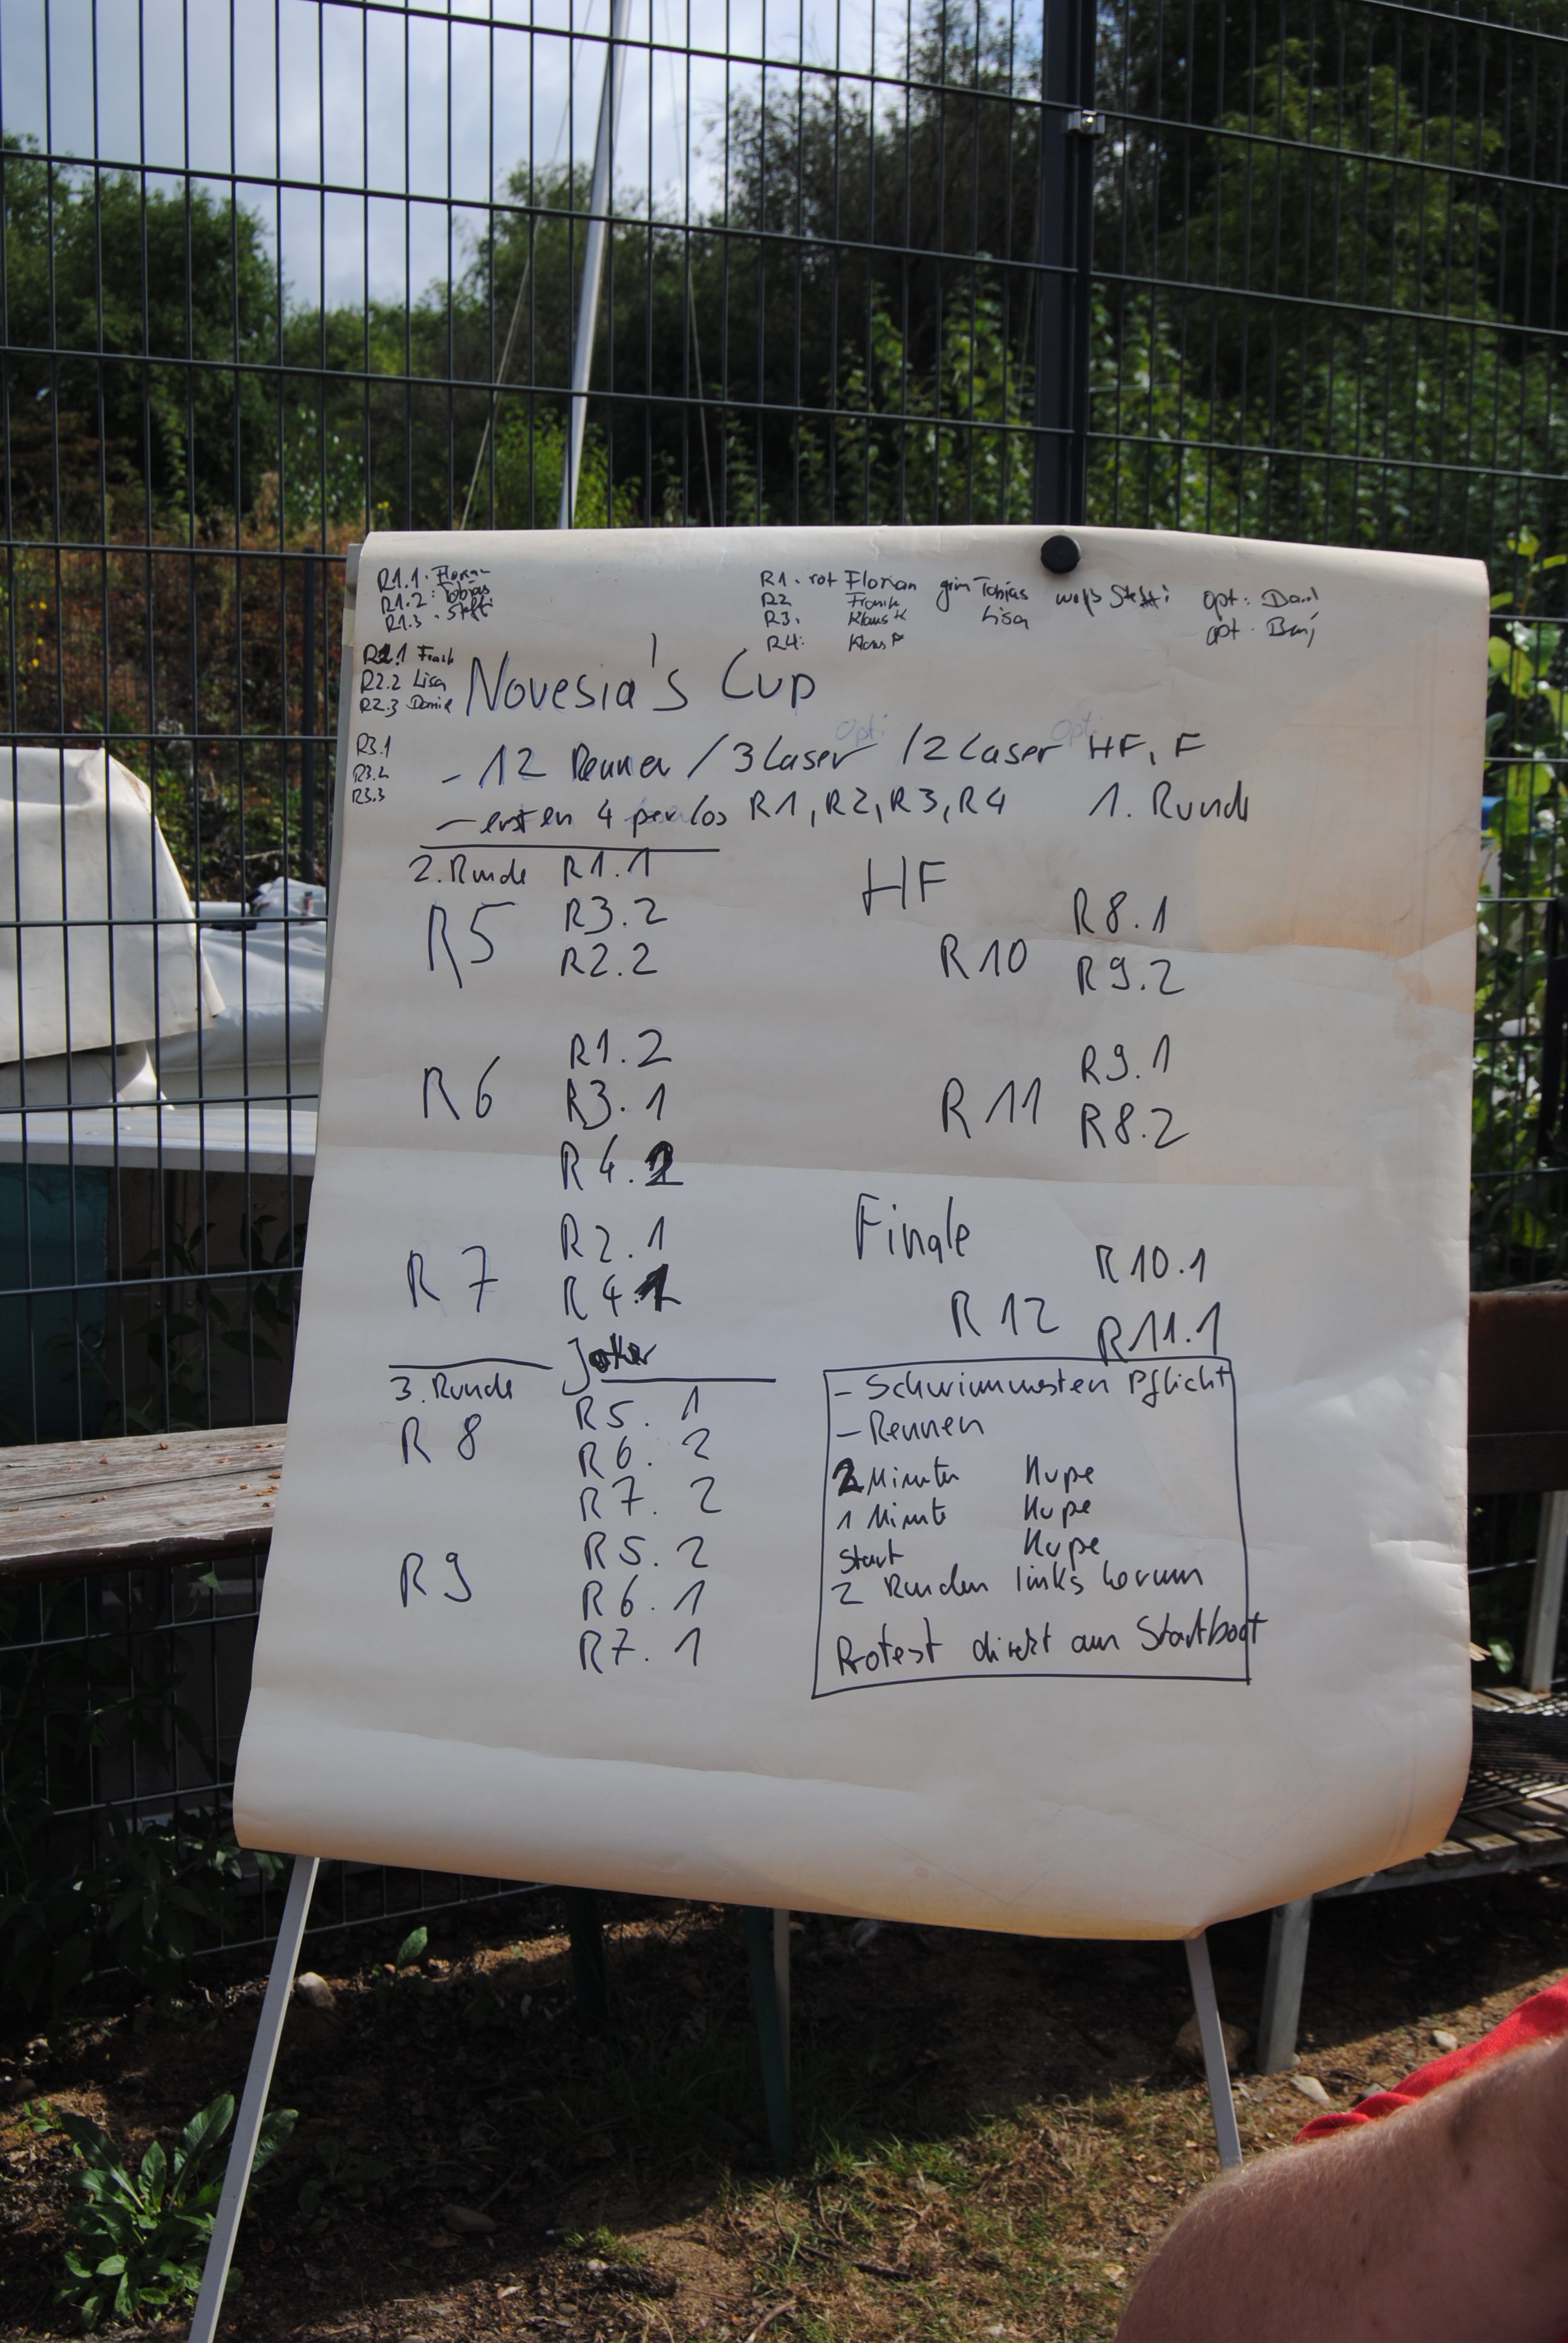 R1.1. Florian
R1.2. Tobias
R1.3. Steffi
R1. rot Florian grün Tobias weiß Steffi opt:
R2 Frank Lisa opt.
R3. Klaus K
R4: Klaus P
R2.1 Frank
R2.2 Lisa
R2.3
R3.1
R3.2
R3.3
Novesia's Cup
Opti Opti
- 12 Rennen / 3 Laser / 2 Laser HF, F
- ersten 4 per Los R1, R2, R3, R4 1. Runde
2. Runde R1.1
R5 R3.2
R2.2
R6 R1.2
R3.1
R4.2
R7 R2.1
R4.1
Joker
3. Runde
R8 R5.1
R6.2
R7.2
R9 R5.2
R6.1
R7.1
HF
R10 R8.1
R9.2
R11 R9.1
R8.2
Finale
R12 R10.1
R11.1
- Schwimmwesten Pflicht
- Rennen
2 Minuten Hupe
1 Minute Hupe
Start Hupe
2 Runden links herum
Protest direkt am Startboot